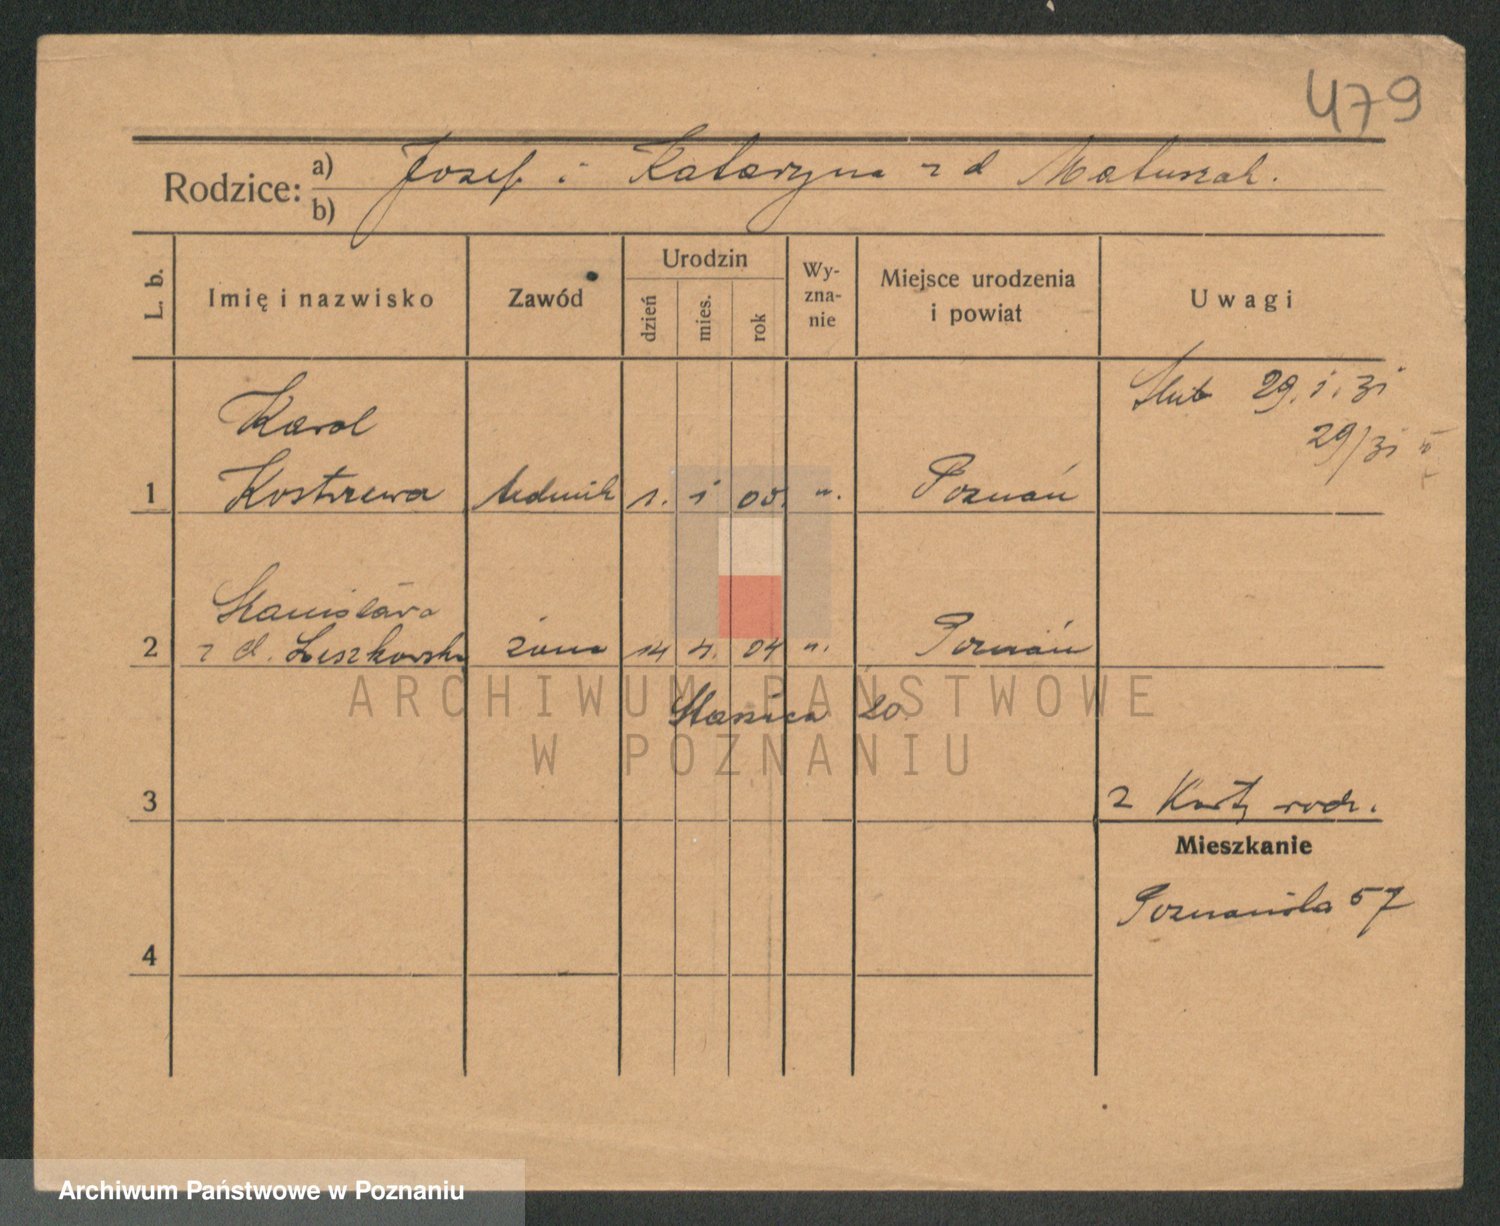 479
Rodzice: a) Jozef i Katarzyna z d Matuszak.
b)
L. b. Imię i nazwisko Zawód Urodzin dzień mies. rok Wyznanie Miejsce urodzenia i powiat Uwagi
Ślub 29. i. 31
29/31
Karol
1 Kostrzewa technik 1. i Poznań
Stanisława
2 z d. Leszkowska żona 14 04 Poznań
Staszica 20.
3 z Karty rodz.
Mieszkanie
Poznańska 57
4
ARCHIWUM PAŃSTWOWE
W POZNANIU
Archiwum Państwowe w Poznaniu